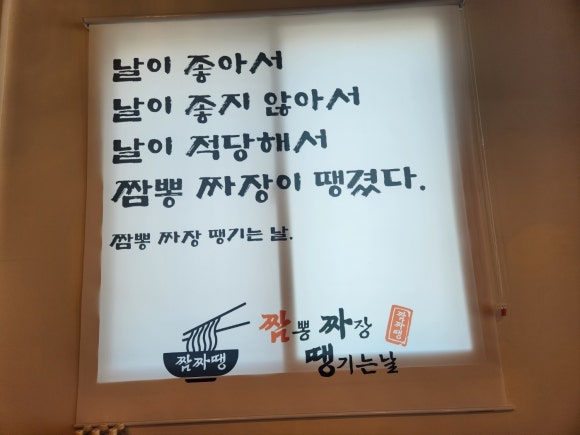 날이 좋아서
날이 좋지 않아서
날이 적당해서
짬뽕 짜장이 땡겼다.
짬뽕 짜장 땡기는 날.
짬짜땡
짬뽕 짜장
땡기는날
짬짜땡